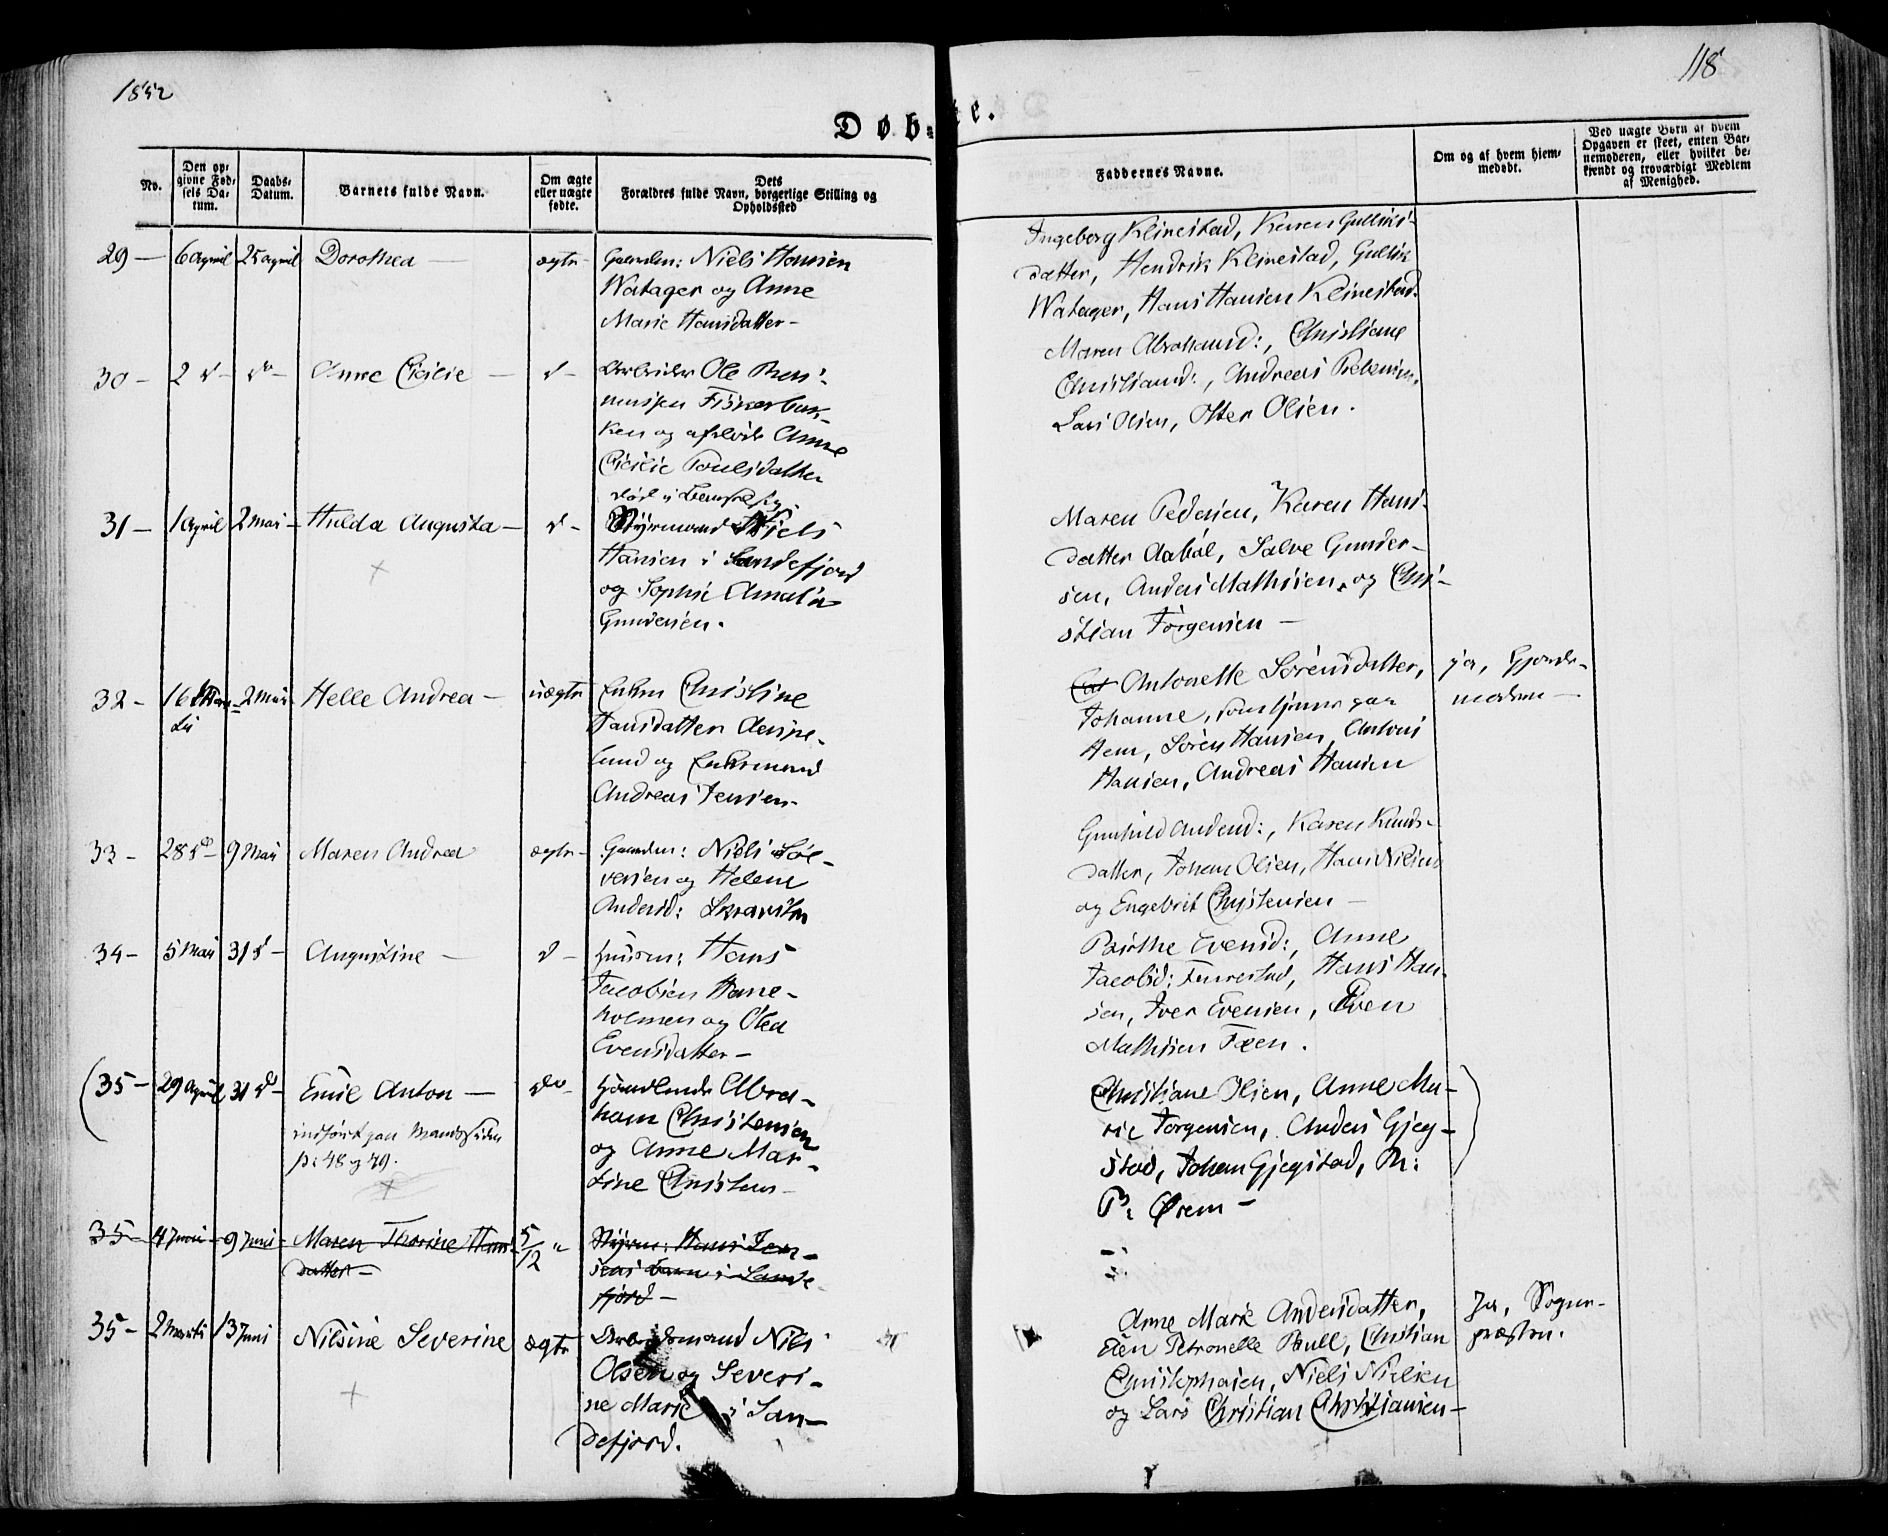 1852
118
Døb-
te.
No.
Den op-
givne Fød-
sels Da-
tum.
Daabs-
Datum.
Barnets fulde Navn.
Om ægte
eller uægte
fødte.
Dets
Forældres fulde Navn, borgerlige Stilling og
Opholdssted
Faddernes Navne.
Om og af hvem hjem-
medøbt.
Ved uægte Børn af hvem
Opgaven er skeet, enten Bar-
nemoderen, eller hvilket be-
kjendt og troværdigt Medlem
af Menighed.
29 — 6 April 25 April Dorothea — ægte Gaardm: Niels Hansen
Watager og Anne
Marie Hansdatter —
Ingeborg Klinestad, Karen Gulliks-
datter, Hendrik Klinestad, Gullik
Watager, Hans Hansen Klinestad.
30 — 2 d — do — Anne Cicilie — d — Arbeider Ole Ras-
mussen Fiskerbak-
ken og afdøde Anne
Cicilie Poulsdatter
død i
Maren Abrahamsd:, Christiane
Christiansd:, Andreas Pedersen,
Lars Olsen, Otter Olsen.
31 — 1 April 2 Mai — Hulda Augusta — d — Styrmand Niels
Hansen i Sandefjord
og Sophie Amalia
Gundersen.
Maren Pedersen, Karen Hans-
datter Aabøl, Salve Gunder-
sen, Anders Mathisen, og Chri-
stian Jørgensen —
32 — 16 Mar-
tii 2 Mai Helle Andrea — uægte Enken Christine
Hansdatter Aenje-
lund og Enkemand
Andreas Jensen.
Cat Antonette Sørensdatter,
Johanne, som tjener paa
Hem, Søren Hansen, Antoni
Hansen, Andreas Hansen
ja, Gjorde-
moderen —
33 — 28 d — 9 Mai Maren Andrea ægte — Gaardm: Niels Sol-
versen og Helene
Andersd: Skravestu
Gunhild Andersd:, Karen Knuds-
datter, Johan Olsen, Hans Nilsen
og Engebrit Christensen —
34 — 5 Mai 31 d — Augustine — d — Huusm: Hans
Jacobsen Hane-
holmen og Olea
Evensdatter —
Birthe Evensd:, Anne
Jacobsd: Furrestad, Hans Han-
sen, Iver Evensen, Even
Mathisen Foen.
(35 — 29 April 31 do — Emil Anton — do — Handlende Abra-
ham Christensen
og Anne Mar-
tine Christens —
indført paa Mandssiden
p: 48 og 49.
Christiane Olsen, Anne Ma-
rie Jørgensen, Anders Gjeg-
stad, Johan Gjegstad, Th:
P: Ørem —
35 — 4 Juni — 9 Juni — Maren Thorine Hans
datter — 5/12 " Styrm: Hans Jen-
sens barn i Sande-
fjord —
35 — 2 Martii 13 Juni Nilsine Severine ægte Arbeidsmand Nils
Olsen og Severi-
ne Marie i San-
defjord.
Anne Marie Andersdatter,
Elen Petronelle Bull, Christian
Christophersen, Niels Nielsen
og Lars Christian Christiansen —
Ja, Sogne-
præsten.